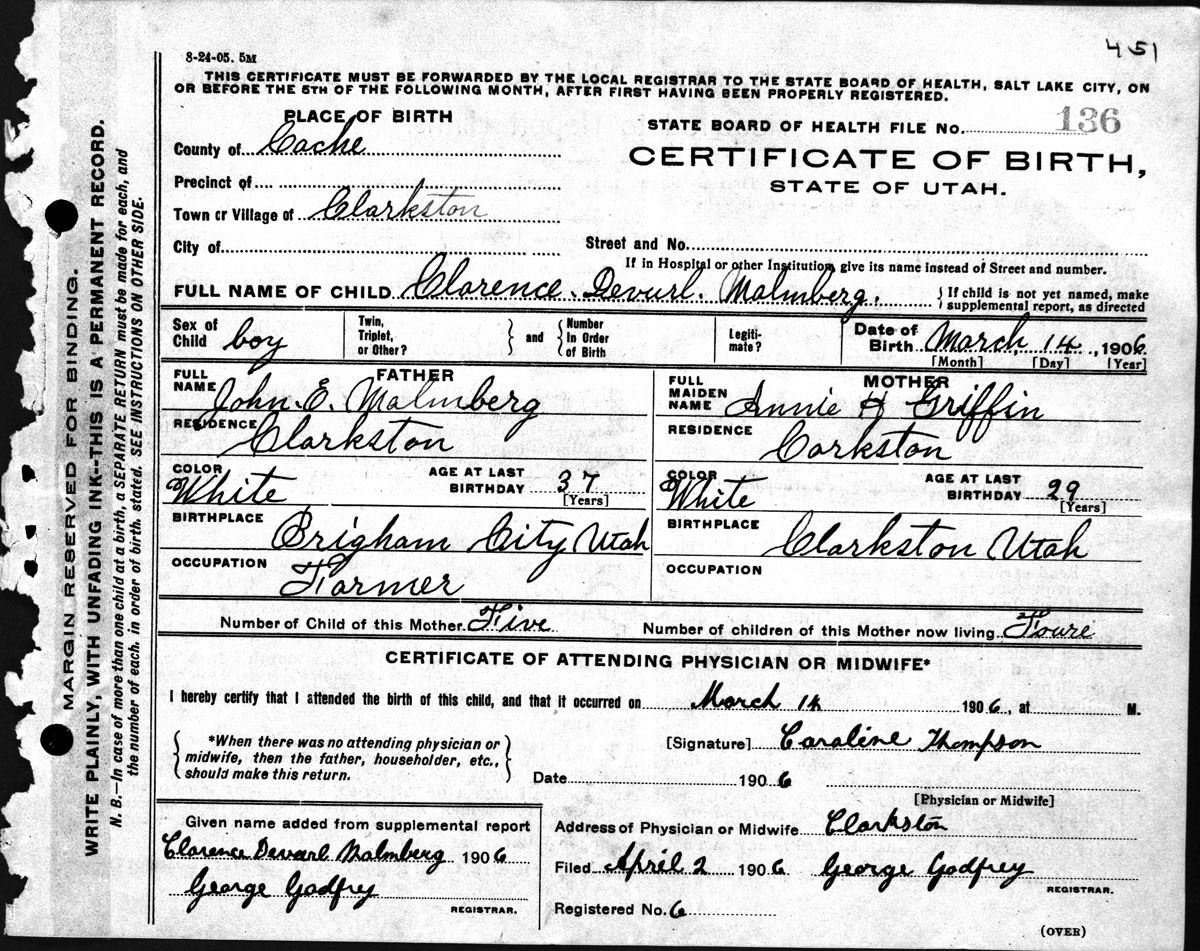 451
8-24-05. 5M
THIS CERTIFICATE MUST BE FORWARDED BY THE LOCAL REGISTRAR TO THE STATE BOARD OF HEALTH, SALT LAKE CITY, ON
OR BEFORE THE 5TH OF THE FOLLOWING MONTH, AFTER FIRST HAVING BEEN PROPERLY REGISTERED.
PLACE OF BIRTH
STATE BOARD OF HEALTH FILE No. 136
County of Cache
CERTIFICATE OF BIRTH,
Precinct of
STATE OF UTAH.
Town or Village of Clarkston
City of
Street and No.
If in Hospital or other Institution, give its name instead of Street and number.
FULL NAME OF CHILD Clarence Devurl. Malmberg. If child is not yet named, make
supplemental report, as directed
Sex of Child boy
Twin, Triplet, or Other? and Number In Order of Birth
Legiti-mate?
Date of Birth March 14, 1906
[Month] [Day] [Year]
FATHER
FULL NAME John. E. Malmberg
RESIDENCE Clarkston
COLOR White
AGE AT LAST BIRTHDAY 37
[Years]
BIRTHPLACE Brigham City Utah
OCCUPATION Farmer
MOTHER
FULL MAIDEN NAME Annie H Griffin
RESIDENCE Carkston
COLOR White
AGE AT LAST BIRTHDAY 29
[Years]
BIRTHPLACE Clarkston Utah
OCCUPATION
Number of Child of this Mother Five
Number of children of this Mother now living Foure
CERTIFICATE OF ATTENDING PHYSICIAN OR MIDWIFE*
I hereby certify that I attended the birth of this child, and that it occurred on March 14 1906, at M.
*When there was no attending physician or
midwife, then the father, householder, etc.,
should make this return.
[Signature] Caraline Thompson
Date 1906
[Physician or Midwife]
Given name added from supplemental report
Clarence Devurl Malmberg 1906
George Godfrey
REGISTRAR.
Address of Physician or Midwife Clarkston
Filed April 2 1906 George Godfrey
REGISTRAR.
Registered No. 6
(OVER)
MARGIN RESERVED FOR BINDING.
WRITE PLAINLY, WITH UNFADING INK--THIS IS A PERMANENT RECORD.
N. B.—In case of more than one child at a birth, a SEPARATE RETURN must be made for each, and
the number of each, in order of birth, stated. SEE INSTRUCTIONS ON OTHER SIDE.